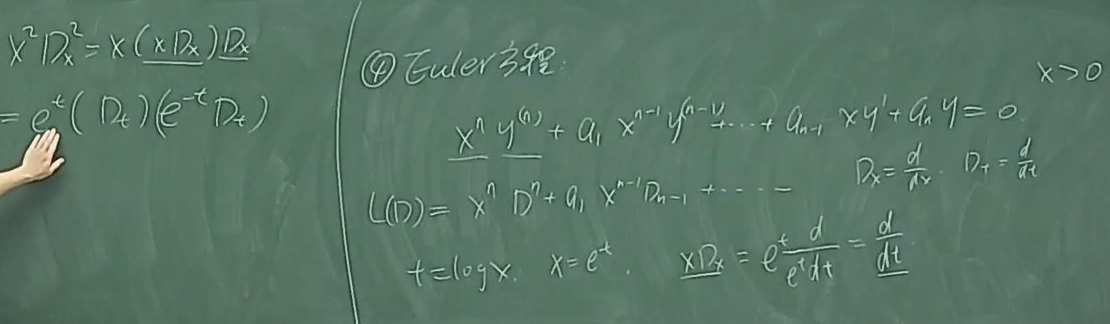 x²Dₓ² = x(xDₓ)Dₓ
= eᵗ(Dₜ)(e⁻ᵗDₜ)
④ Euler方程:
x>0
xⁿy⁽ⁿ⁾ + a₁xⁿ⁻¹y⁽ⁿ⁻¹⁾+....+ aₙ₋₁xy' + aₙy = 0.
Dₓ = d/dx. Dₜ = d/dt
L(D) = xⁿDⁿ + a₁xⁿ⁻¹Dₙ₋₁ + ....
t = log x. x = eᵗ. xDₓ = eᵗ d/eᵗdt = d/dt